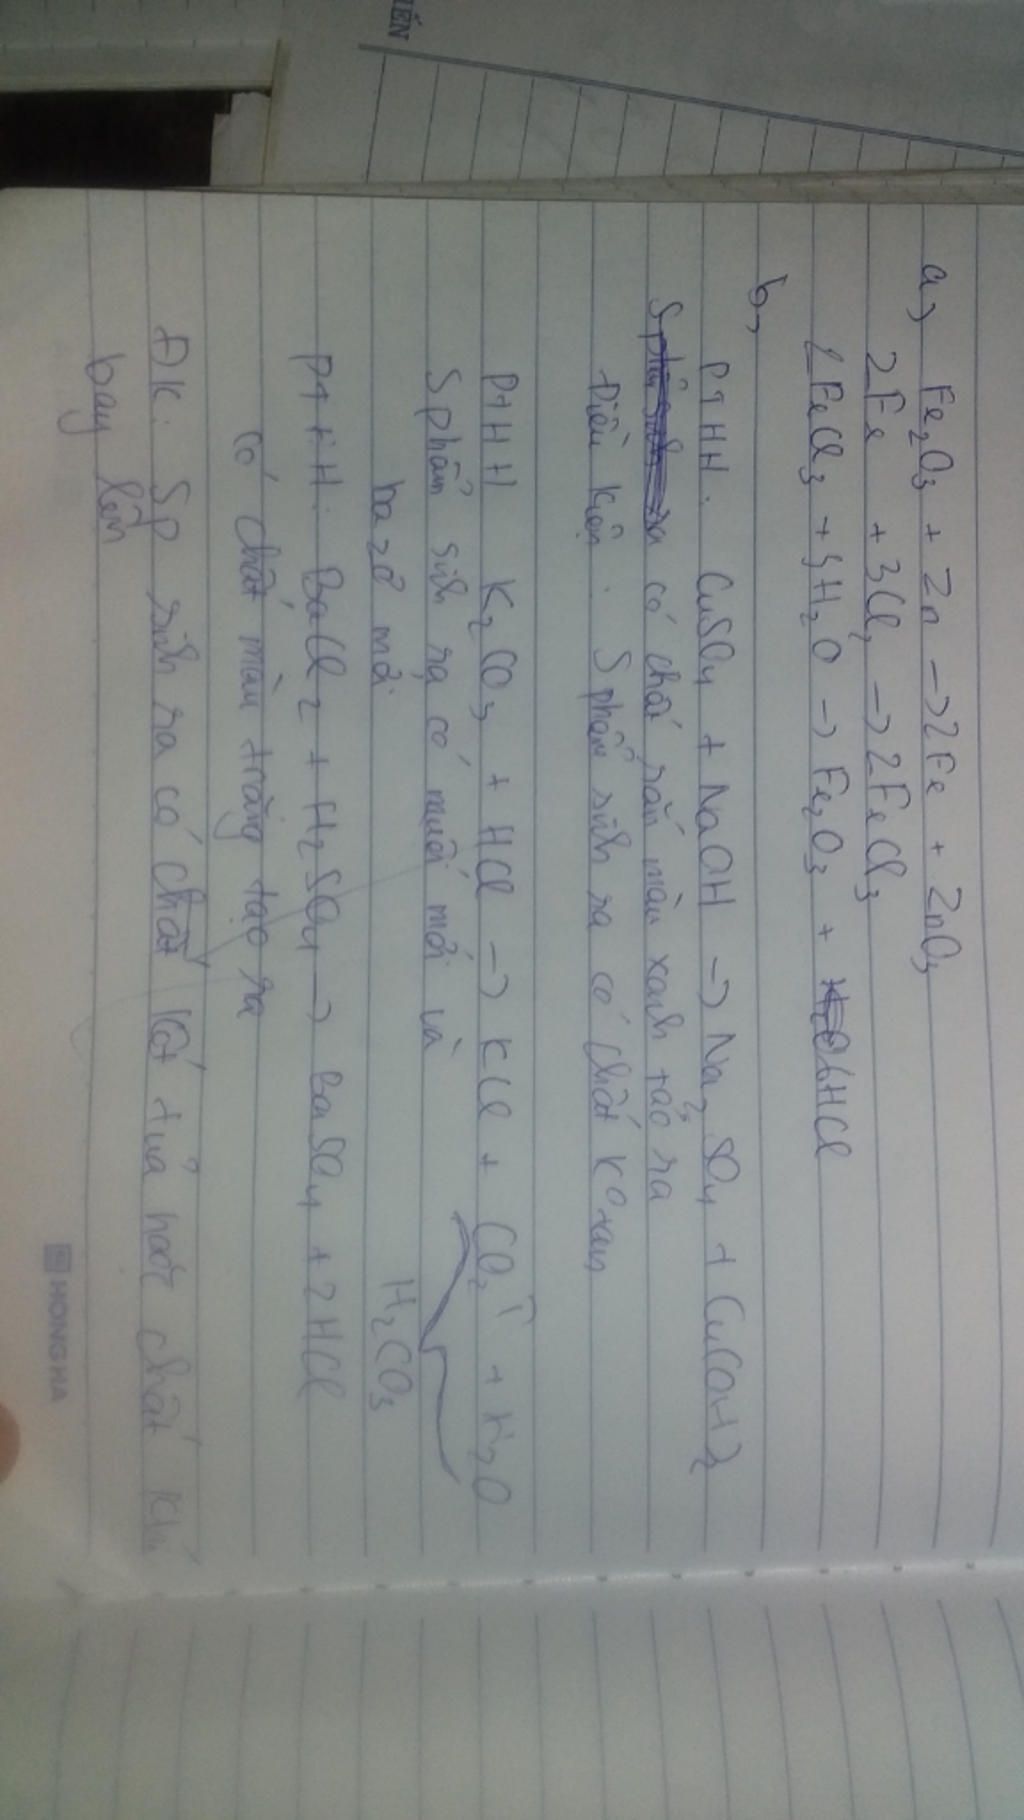 a) Fe2O3 + Zn → 2Fe + ZnO3
2Fe + 3Cl2 → 2FeCl3
2FeCl3 + 3H2O → Fe2O3 + 6HCl
b,
PTHH: CuSO4 + NaOH → Na2SO4 + Cu(OH)2
có chất rắn màu xanh tạo ra
Điều kiện: Sphẩm sinh ra có chất Ko tan
PTHH K2CO3 + HCl → KCl + CO2↑ + H2O
Sphẩm sinh ra có muối mới và
bazơ mới H2CO3
PTHH: BaCl2 + H2SO4 → BaSO4 + 2HCl
Có chất màu trắng tạo ra
ĐK: Sp sinh ra có chất kết tủa hoặc chất khí
bay lên
HONG HA